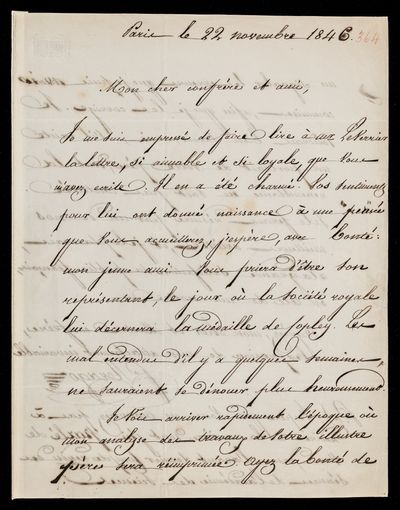 Paris le 22 novembre 1846. 364
Mon cher confrère et ami,
Je me suis empressé de faire lire à Mr Le Verrier
la lettre, si aimable et si loyale, que vous
m'avez écrite. Il en a été charmé. Vos sentiments
pour lui ont donné naissance à une pensée
que vous accueillerez, j'espère, avec bonté:
mon jeune ami vous priera d'être son
représentant, le jour où la société royale
lui décernera la médaille de Copley. Le
mal entendu d'il y a quelques semaines,
ne sauraient se dénouer plus heureusement.
Je vois arriver rapidement l'époque où
mon analyse des travaux de votre illustre
père sera réimprimée. ayez la bonté de